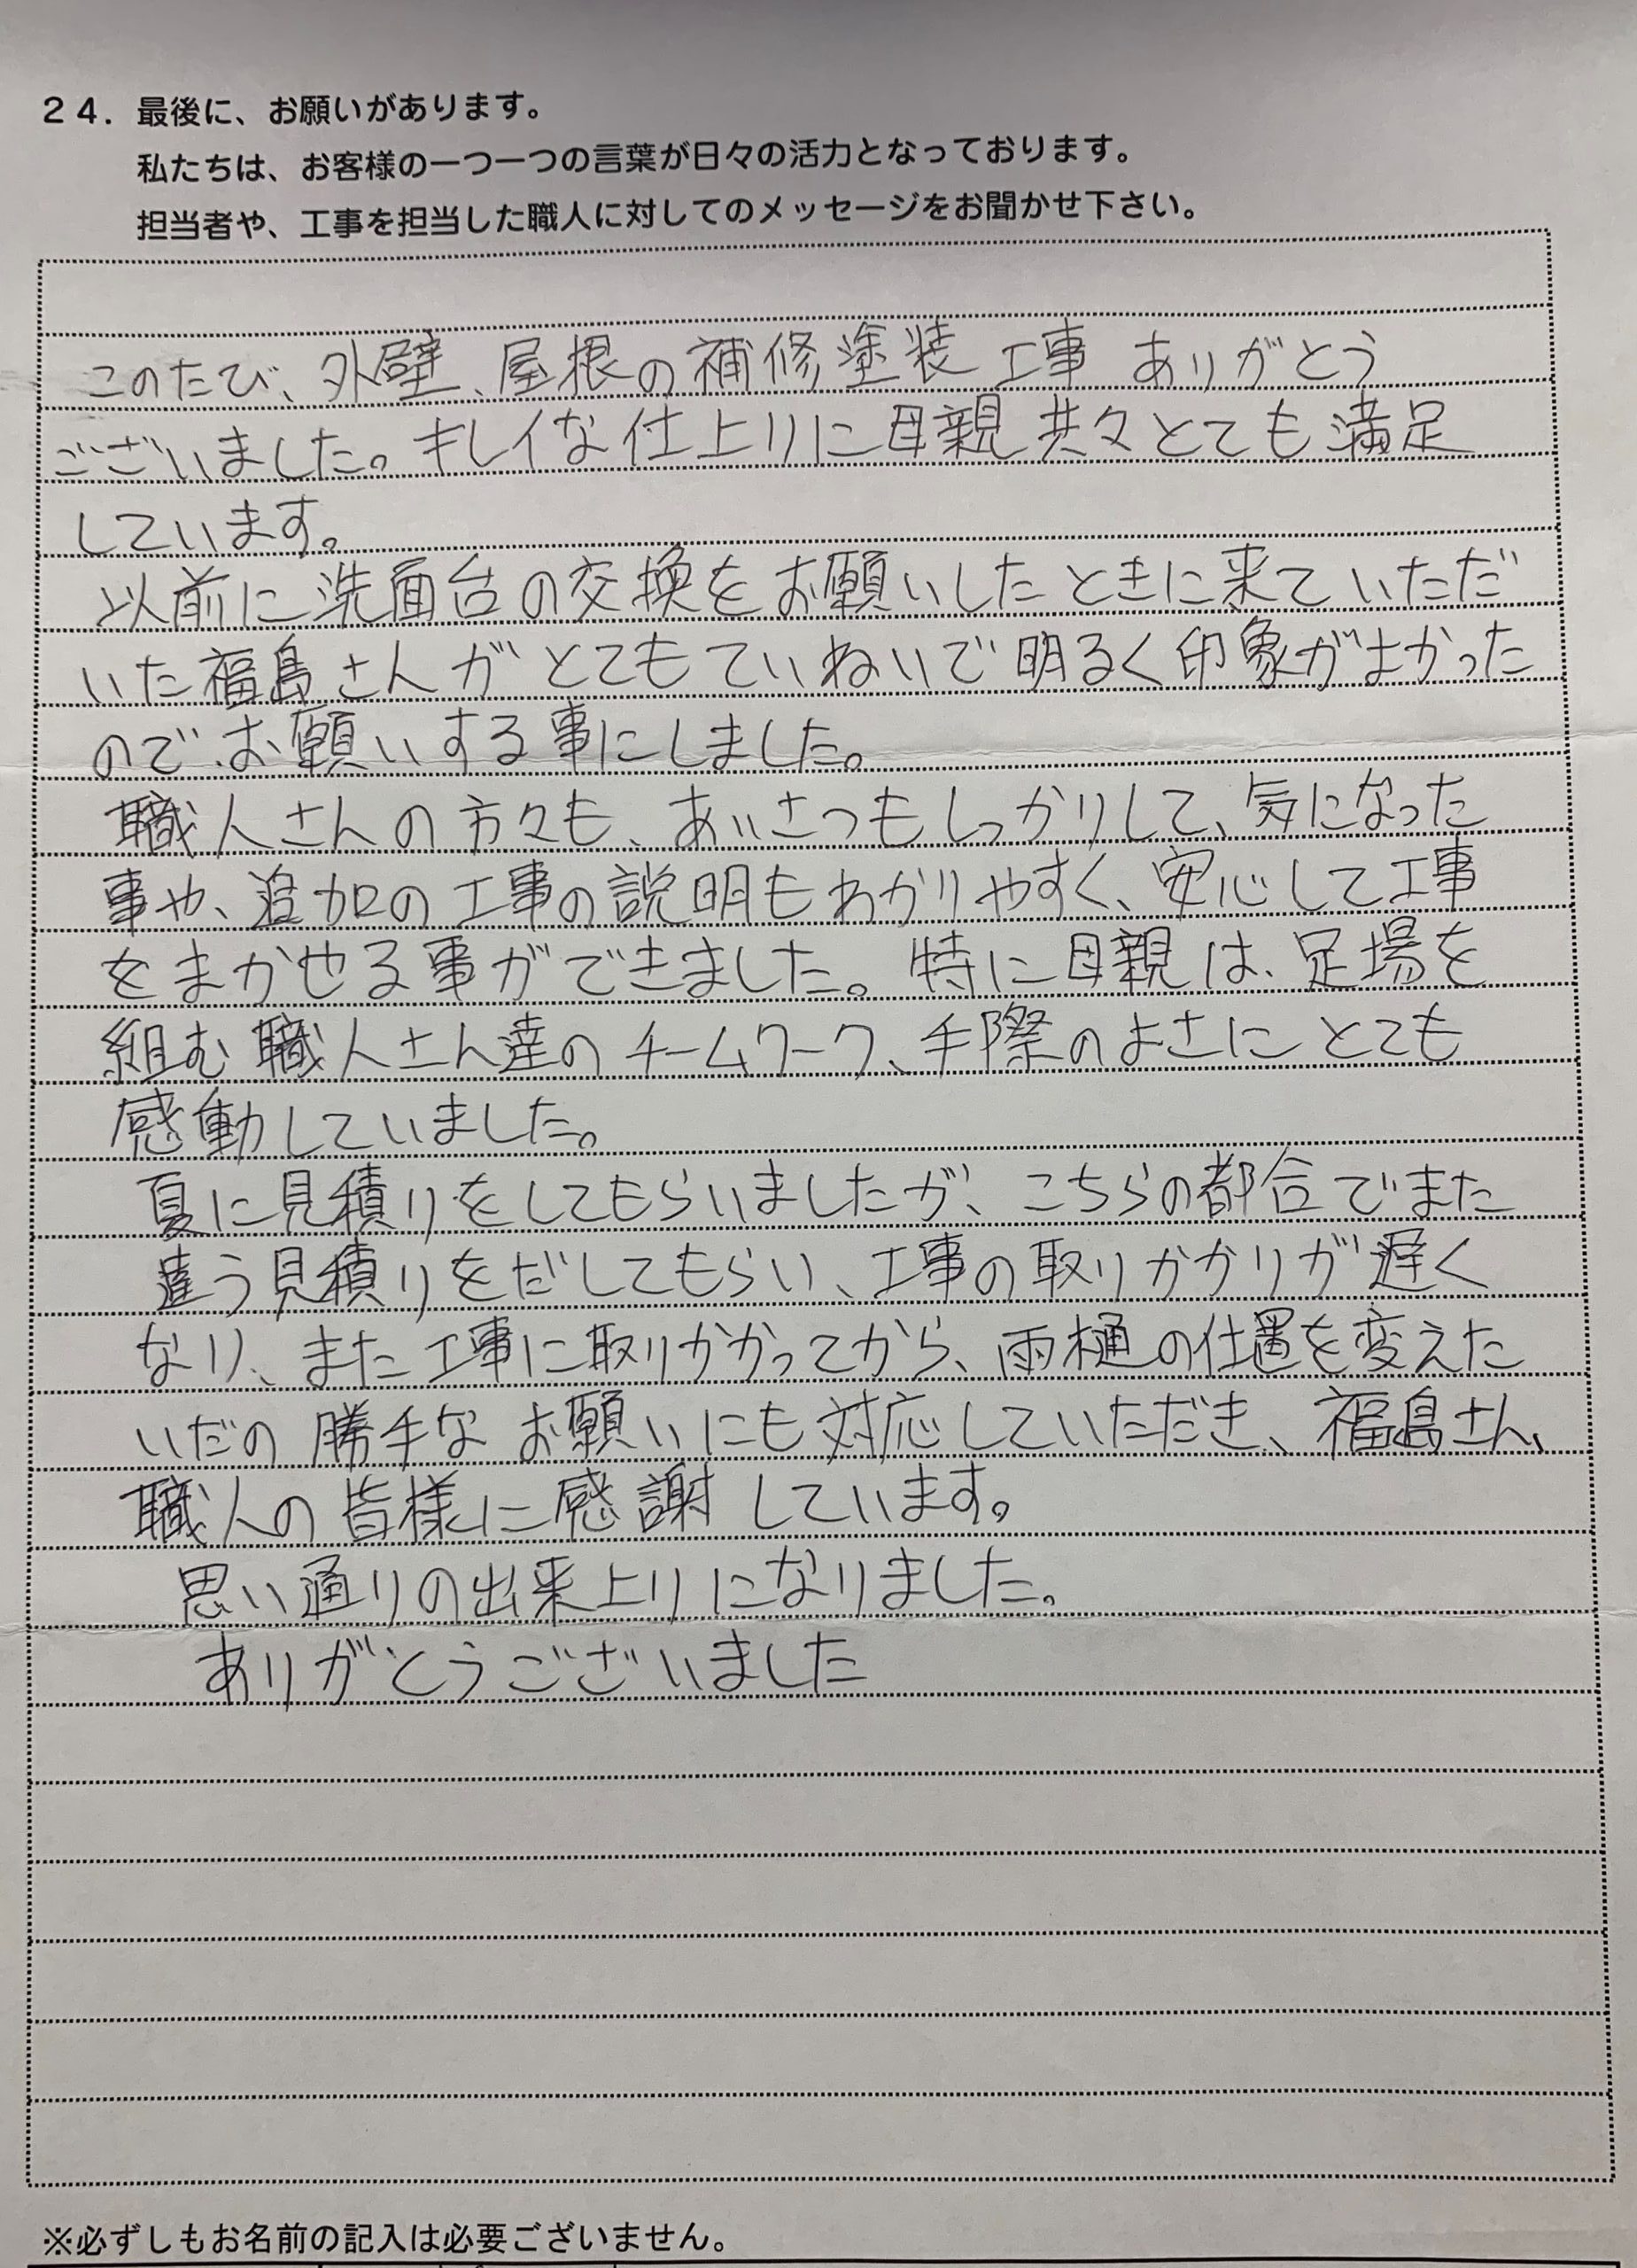 ２４．最後に、お願いがあります。
私たちは、お客様の一つ一つの言葉が日々の活力となっております。
担当者や、工事を担当した職人に対してのメッセージをお聞かせ下さい。
このたび、外壁、屋根の補修塗装工事 ありがとう
ございました。キレイな仕上りに母親共々とても満足
しています。
以前に洗面台の交換をお願いしたときに来ていただ
いた福島さんがとてもていねいで明るく印象がよかった
のでお願いする事にしました。
職人さんの方々も、あいさつもしっかりして、気になった
事や、追加の工事の説明もわかりやすく、安心して工事
をまかせる事ができました。特に母親は、足場を
組む職人さん達のチームワーク、手際のよさにとても
感動していました。
夏に見積りをしてもらいましたが、こちらの都合でまた
違う見積りをだしてもらい、工事の取りかかりが遅く
なり、また工事に取りかかってから、雨樋の位置を変えた
いだの勝手なお願いにも対応していただき、福島さん、
職人の皆様に感謝しています。
思い通りの出来上りになりました。
ありがとうございました
※必ずしもお名前の記入は必要ございません。